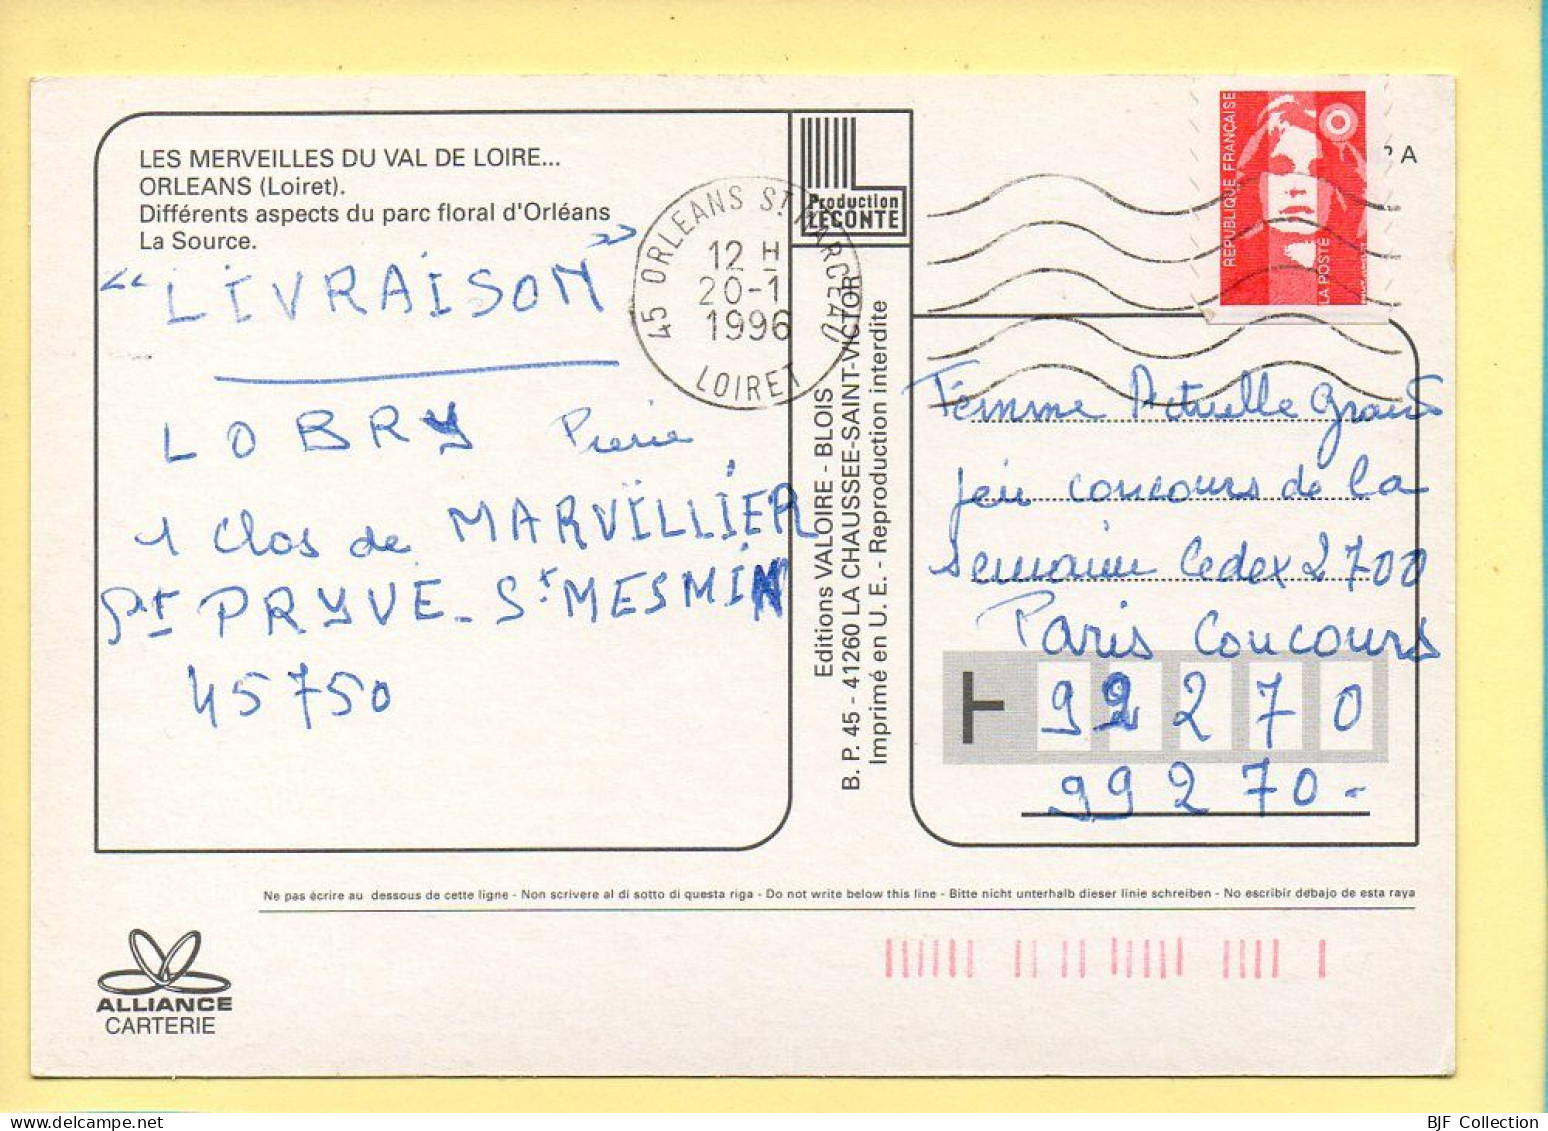 LES MERVEILLES DU VAL DE LOIRE...
ORLEANS (Loiret).
Différents aspects du parc floral d'Orléans
La Source.
"LIVRAISON"
LOBRY Pierre
1 Clos de MARVILLIER
St PRYVE-St MESMIN
45750
Production
LECONTE
45 ORLEANS ST MARCEAU
12 H
20-1
1996
LOIRET
Editions VALOIRE - BLOIS
B. P. 45 - 41260 LA CHAUSSEE-SAINT-VICTOR
Imprimé en U. E. - Reproduction interdite
REPUBLIQUE FRANÇAISE
LA POSTE
A
Femme Actuelle Grand
jeu concours de la
semaine Cedex 2700
Paris Concours
99270
99270-
Ne pas écrire au dessous de cette ligne - Non scrivere al di sotto di questa riga - Do not write below this line - Bitte nicht unterhalb dieser linie schreiben - No escribir debajo de esta raya
ALLIANCE
CARTERIE
BJF Collection